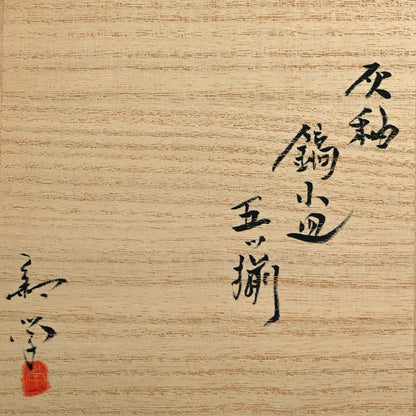 灰釉
鎬小皿
五ッ揃
和学